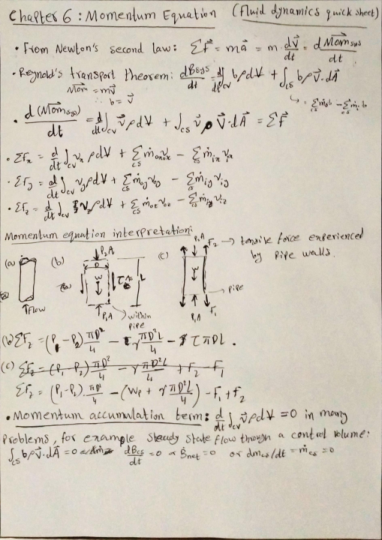 Chapter 6 : Momentum Equation (Fluid dynamics quick sheet)
• From Newton's second law: ΣF⃗ = ma⃗ = m · dv⃗/dt = d Mom⃗sys/dt
• Reynold's transport theorem: dBsys/dt = d/dt ∫cv bρdV + ∫cs bρV⃗·dA⃗
Mom⃗ = mv⃗
∴ b = v⃗
• d(Mom⃗sys)/dt = d/dt ∫cv v⃗ρdV + ∫cs v⃗ρV⃗·dA⃗ = ΣF⃗
• ΣFx = d/dt ∫cv vxρdV + Σcs ṁox vx − Σcs ṁix vx
• ΣFy = d/dt ∫cv vyρdV + Σcs ṁoy vy − Σcs ṁiy viy
• ΣFz = d/dt ∫cv vzρdV + Σcs ṁoz vz − Σcs
Momentum equation interpretation:
(a) (b) (c) P2A F2 → tensive force experienced by pipe walls.
W τ L
↑flow P1A within pipe P1A F1 pipe
(b) ΣFz = (P1 − P2) πD²/4 − γ πD²L/4 − τπDL.
(c) ΣFz = (P1 − P2) πD²/4 − γ πD²L/4 + F2 − F1
ΣFz = (P1 − P2) πD/4 − (Wp + γ πD²L/4) − F1 + F2
• Momentum accumulation term: d/dt ∫cv v⃗ρdV = 0 in many
problems, for example steady state flow through a control volume:
∫cs bρV⃗·dA⃗ = 0 dBcv/dt = 0 Ḃnet = 0 or dmcv/dt = ṁcs = 0